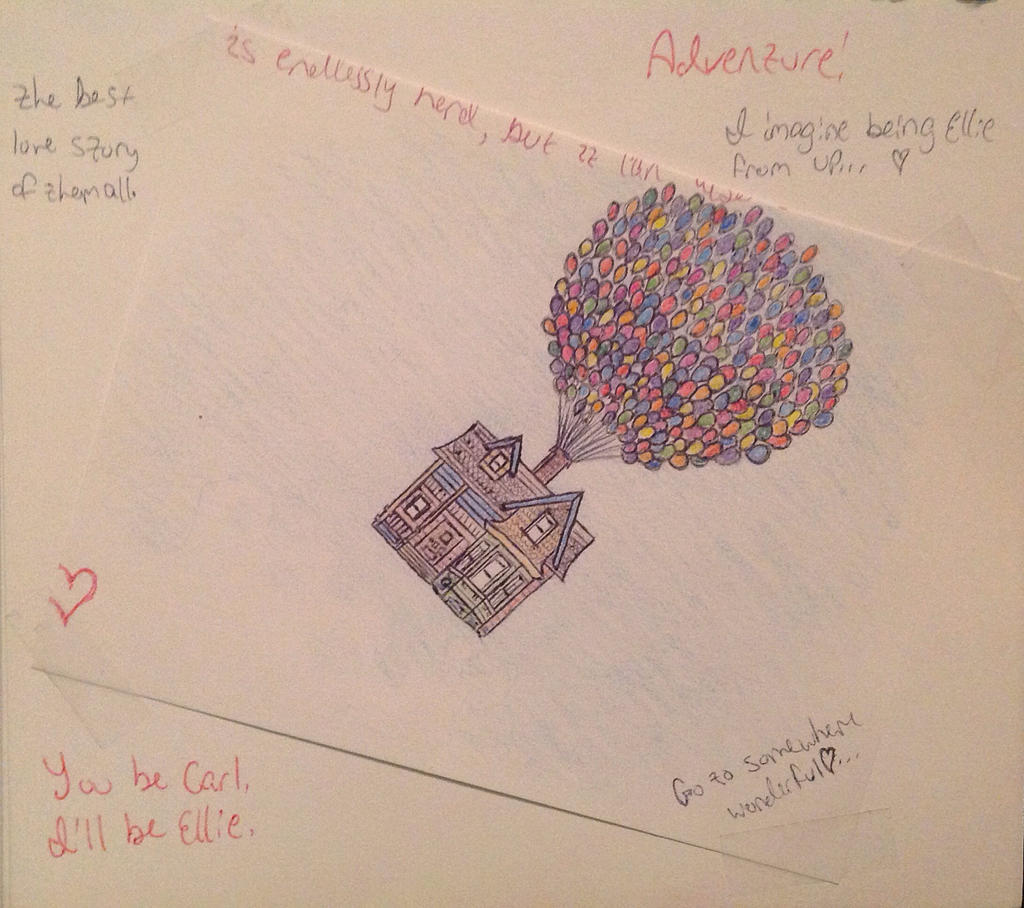 is endlessly hard, but it can
Adventure!
the best
love story
of them all.
I imagine being Ellie
from UP... ♡
You be Carl,
I'll be Ellie.
Go to somewhere
wonderful♡...